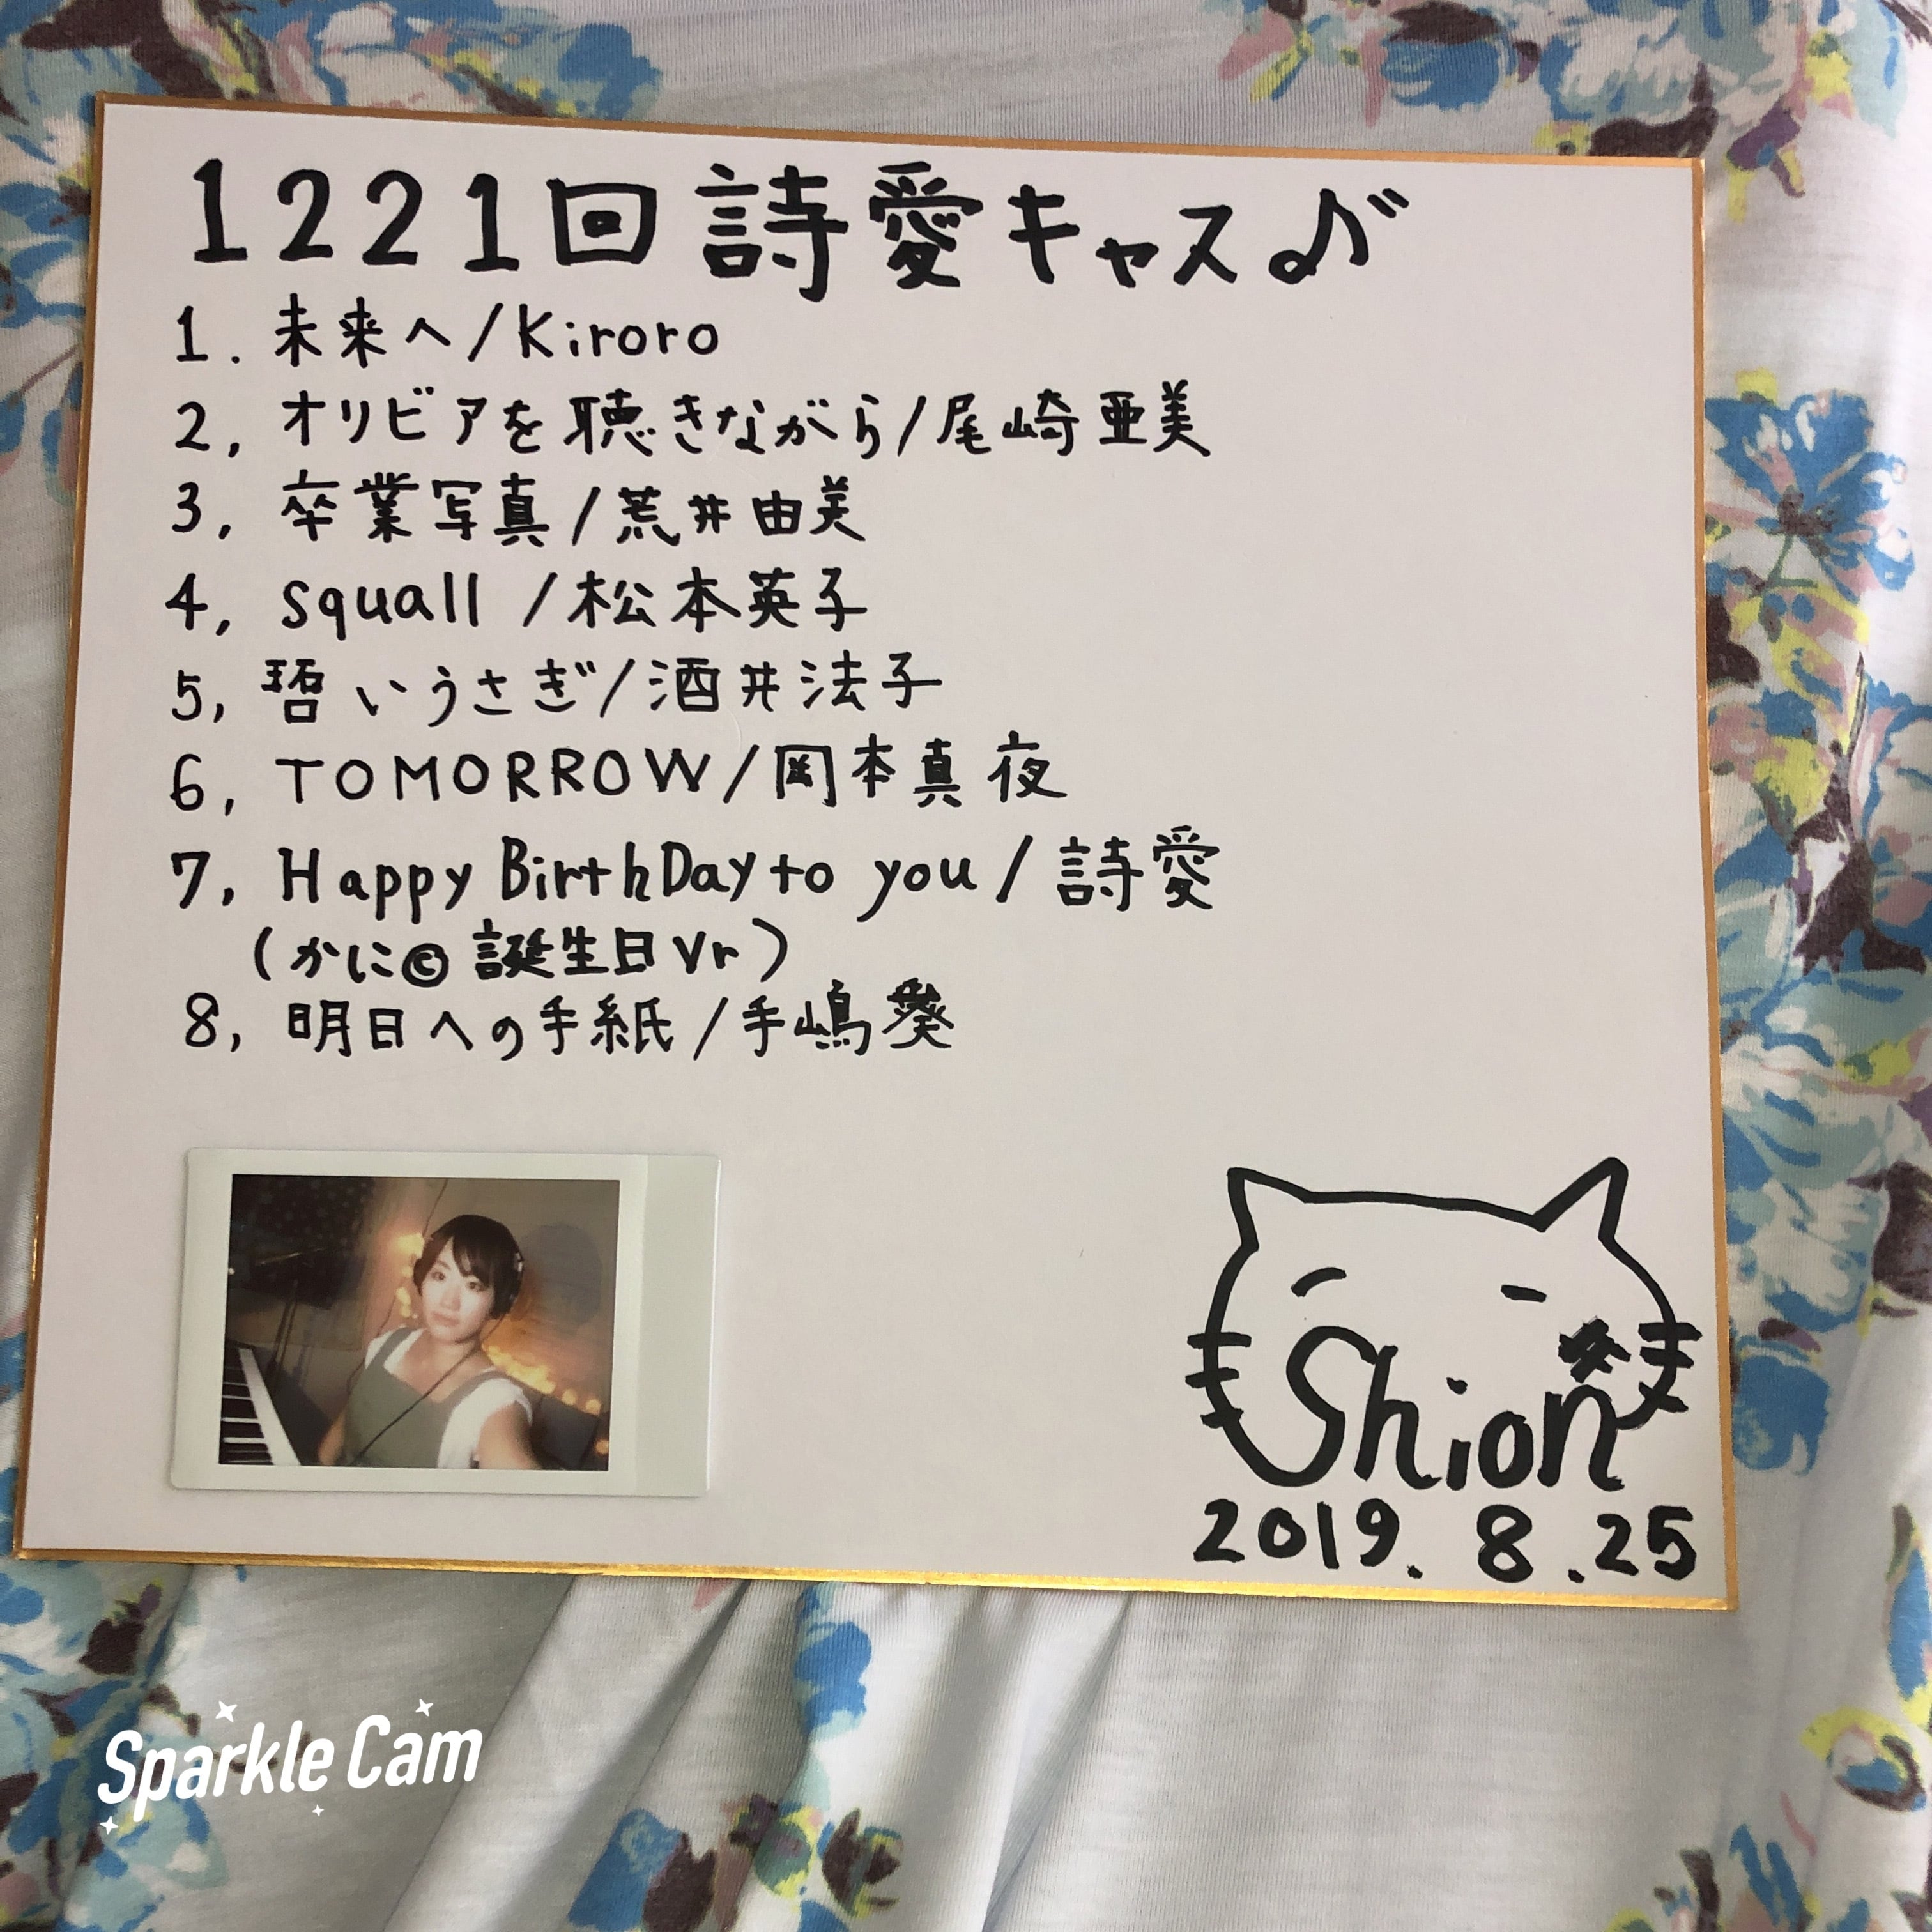 1221回詩愛キャス♪
1. 未来へ/Kiroro
2, オリビアを聴きながら/尾崎亜美
3, 卒業写真/荒井由美
4, squall /松本英子
5, 碧いうさぎ/酒井法子
6, TOMORROW/岡本真夜
7, Happy BirthDay to you/詩愛
(かに© 誕生日Vr)
8, 明日への手紙/手嶋葵
Shion
2019.8.25
Sparkle Cam